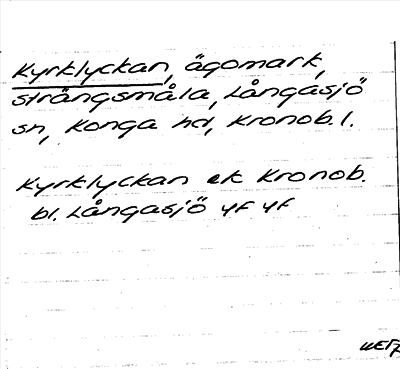 Kyrklyckan, ägomark,
Strängsmåla, Långasjö
sn, Konga hd, Kronob. l.
Kyrklyckan ek Kronob.
bl. Långasjö yf yf